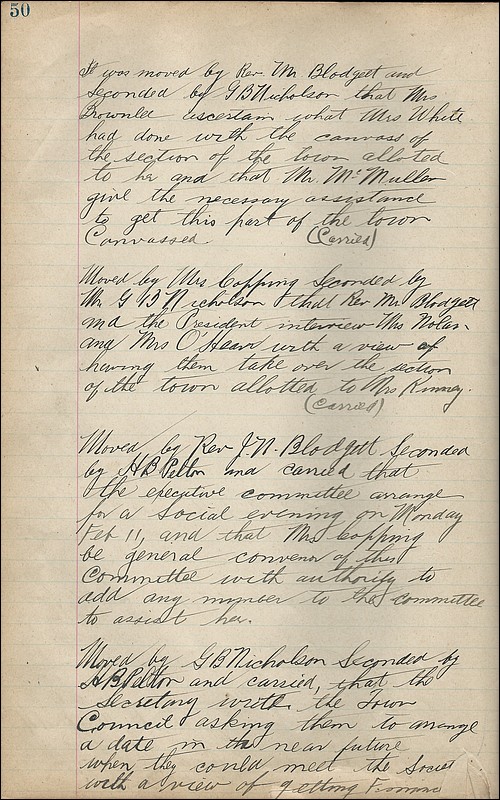 50
It was moved by Rev Mr Blodgett and
seconded by G B Nicholson that Mrs
Brownlee ascertain what Mrs White
had done with the canvass of
the section of the town alloted
to her and that Mr. McMullen
give the necessary assistance
to get this part of the town
Canvassed. (Carried)
Moved by Mrs Copping Seconded by
Mr G B Nicholson that Rev Mr Blodgett
and the President interview Mrs Nolan
and Mrs O'Hearn with a view of
having them take over the section
of the town allotted to Mrs Kinney.
(Carried)
Moved by Rev J. N. Blodgett Seconded
by H B Pelton and carried that
the executive committee arrange
for a Social evening on Monday
Feb 11, and that Mrs Copping
be general convenor of this
Committee with authority to
add any number to the committee
to assist her.
Moved by G B Nicholson Seconded by
H B Pelton and carried, that the
Secretary write the Town
Council asking them to arrange
a date in the near future
when they could meet the Societ
with a view of getting